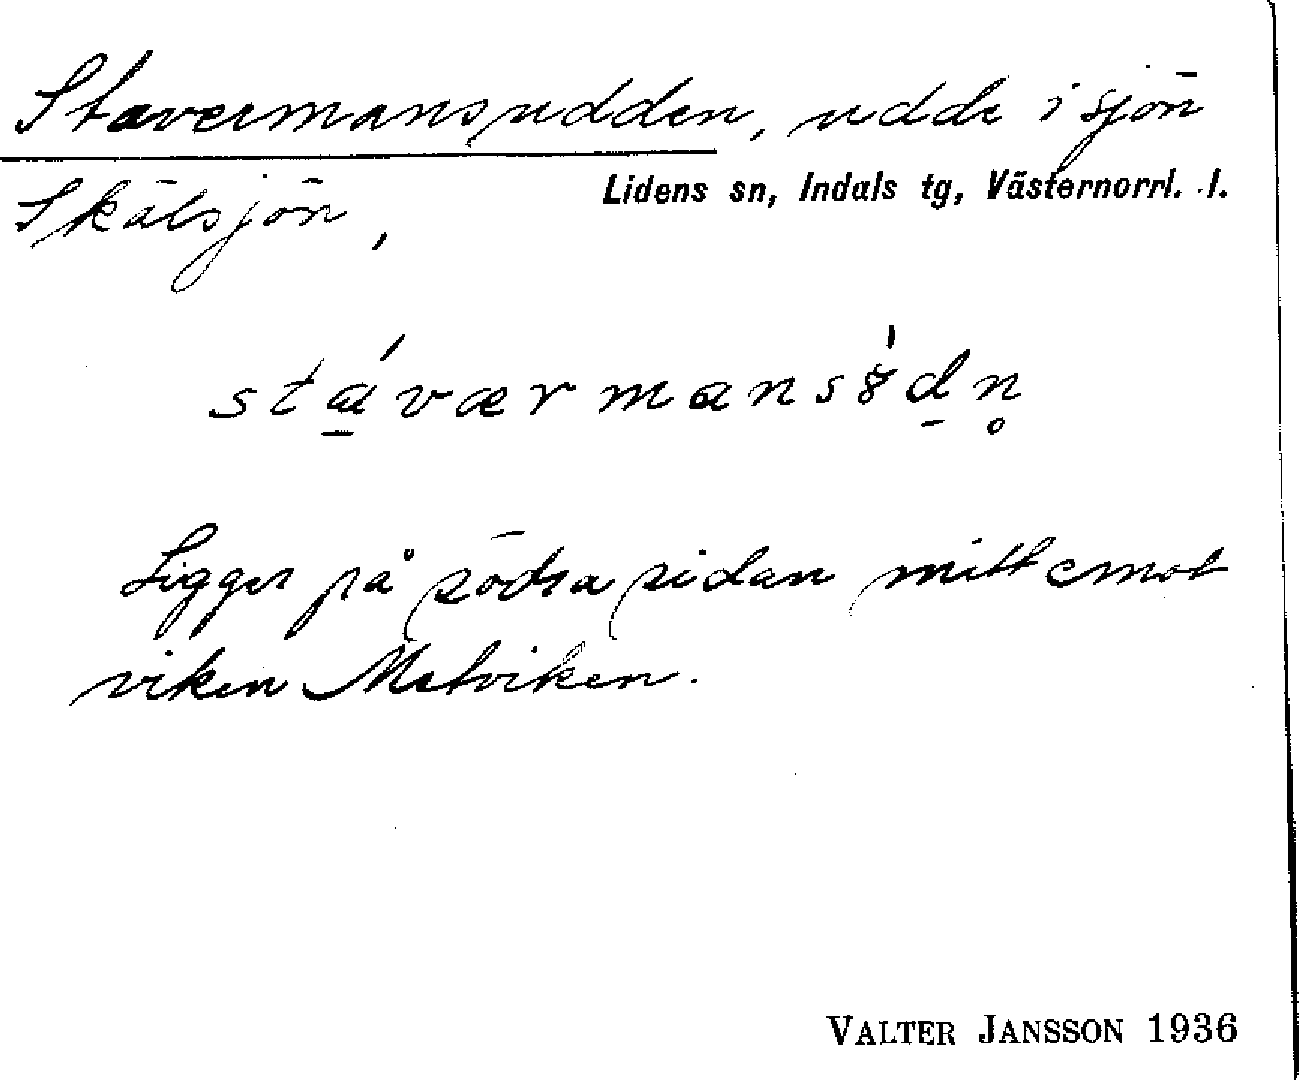 Stavermansudden, udde i sjön
Lidens sn, Indals tg, Västernorrl. l.
Skälsjön,
stáværmansȣ́dn̥
Ligger på södra sidan mitt emot
viken Matviken.
VALTER JANSSON 1936